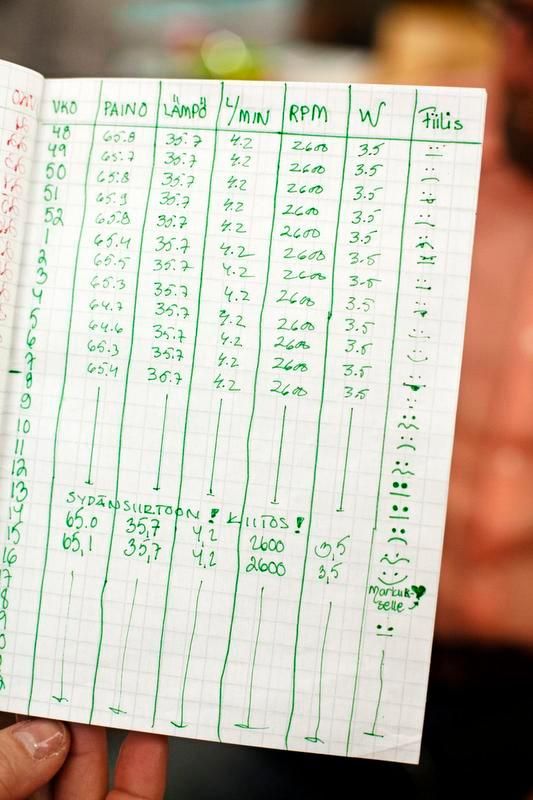 VKO PAINO LÄMPÖ L/MIN RPM W Fiilis
48 65.8 35.7 4.2 2600 3.5
49 65.7 35.7 4.2 2600 3.5
50 65.8 35.7 4.2 2600 3.5
51 65.9 35.7 4.2 2600 3.5
52 65.8 35.7 4.2 2600 3.5
1 65.4 35.7 4.2 2600 3.5
2 65.5 35.7 4.2 2600 3.5
3 65.3 35.7 4.2 2600 3.5
4 64.7 35.7 4.2 2600 3.5
5 64.6 35.7 4.2 2600 3.5
6 65.3 35.7 4.2 2600 3.5
7 65.4 35.7 4.2 2600 3.5
8
9
10
11
12
13 SYDÄNSIIRTOON! KIITOS!
14 65.0 35,7 4,2 2600 3,5
15 65,1 35,7 4,2 2600 3,5
16
Markuk-
selle